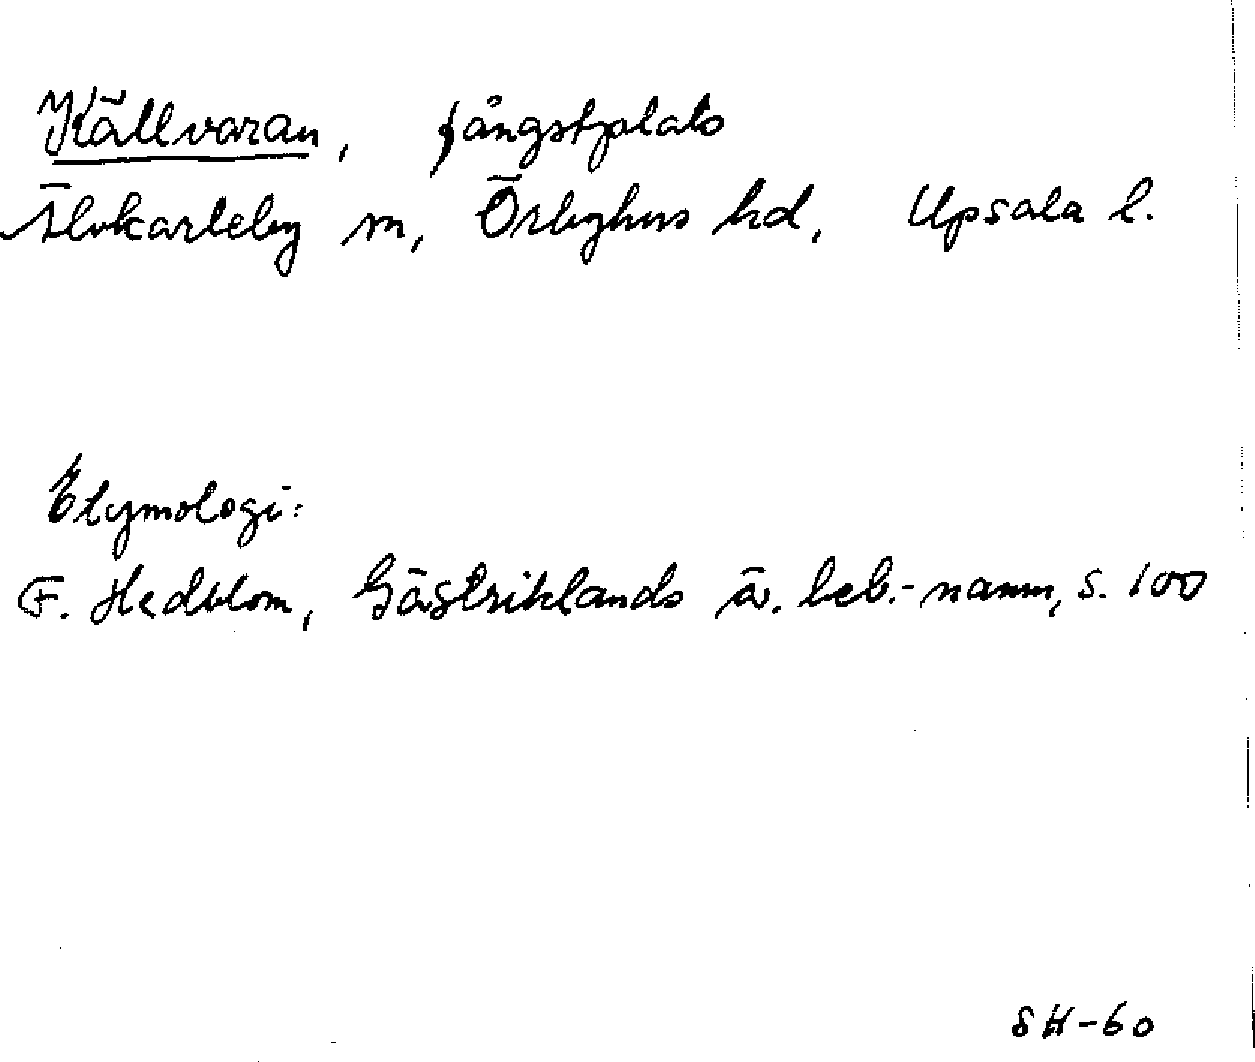 Källvaran, fångstplats
Älvkarleby sn, Örbyhus hd, Upsala l.
Etymologi:
F. Hedblom, Gästriklands ä. beb.-namn, s. 100
SH-60